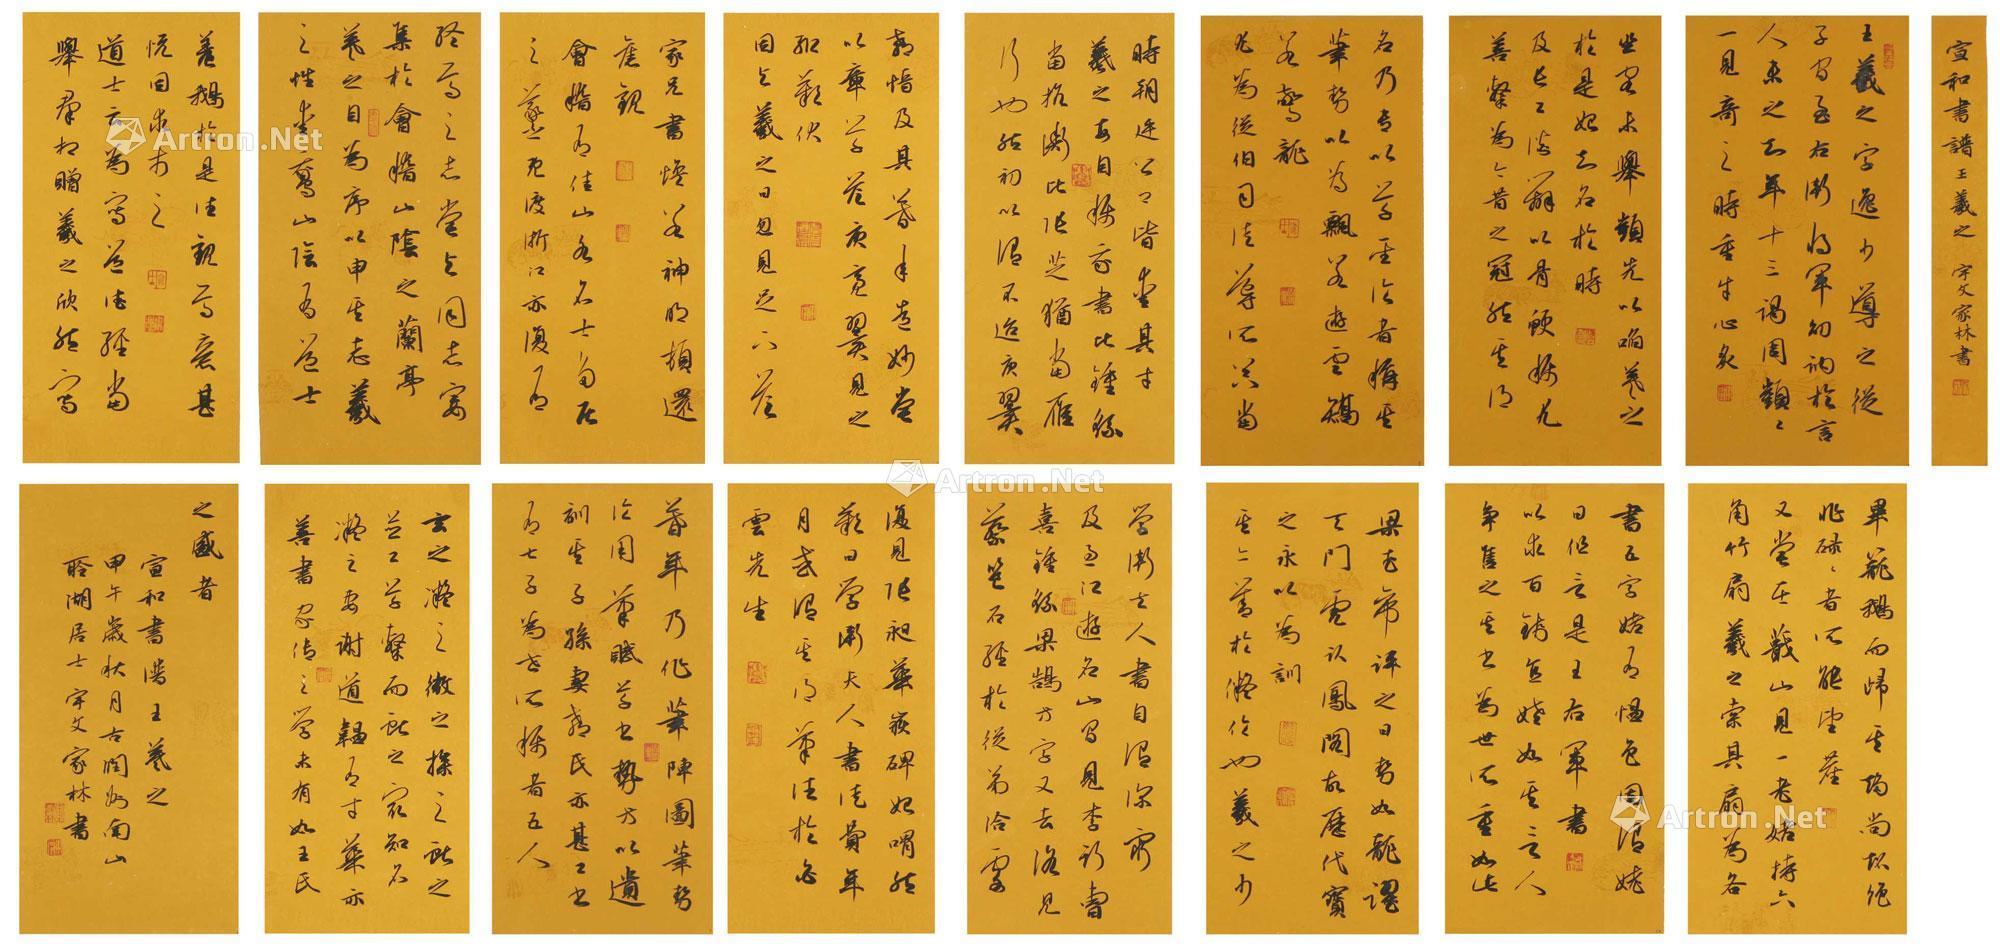 宣和書譜王羲之 宇文家林書
王羲之字逸少導之從
子官至右將軍幼訥於言
人未之知年十三謁周顗〻
一見奇之時重牛心炙
坐客未舉顗先以啗羲之
於是始知名於時
及長工辯以骨鯁稱尤
善隸為今昔之冠然其得
名乃專以草聖論者稱其
筆勢以為飄若遊雲矯
若驚龍
尤為從伯司徒導所器當
時朝廷公卿皆愛其才
羲之每自稱我書比鍾繇
當抗衡比張芝猶當雁
行也然初以得不迨庾翼
郗愔及其暮年造妙嘗
以章草答庾亮翼見之
歎伏
因與羲之曰忽見足下答
家兄書煥若神明頓還
舊觀
會稽有佳山水名士多居
之羲既渡浙江亦復有
終焉之志嘗與同志宴
集於會稽山陰之蘭亭
羲之自為序以申其志羲
之性愛鵞山陰有道士
養鵝於是往觀焉意甚
悅因求市之
道士云為寫道德經當
舉群相贈羲之欣然寫
畢籠鵝而歸其尚拔絕
非碌〻者所能望塵
又嘗在蕺山見一老姥持六
角竹扇羲之索其扇為各
書五字姥有慍色因謂姥
曰但言是王右軍書
以求百錢宜姥如其言人
爭售之其書為世所重如此
梁武帝評之曰勢如龍躍
天門虎臥鳳閣故歷代寶
之永以為訓
其亦善於儗倫也羲之少
學衛夫人書自謂深窮
及過江遊名山見李斯曹
喜鍾繇梁鵠等字又去洛見
蔡邕石經於從弟洽處
復見張昶華嶽碑始喟然
歎曰學衛夫人書徒費年
月或謂其得筆法於白
雲先生
暮年乃作筆陣圖筆勢
論用筆賦草書勢等以遺
訓其子孫妻郗氏亦甚工書
有七子為世所稱者五人
玄之凝之徽之操之獻之
並工草隸而獻之最知名
凝之妻謝道韞有才華亦
善書家傳之學未有如王氏
之盛者
宣和書譜王羲之
甲午歲秋月古潤州南山
聆湖居士宇文家林書
Artron.Net
Artron.Net
Artron.Net
Artron.Net